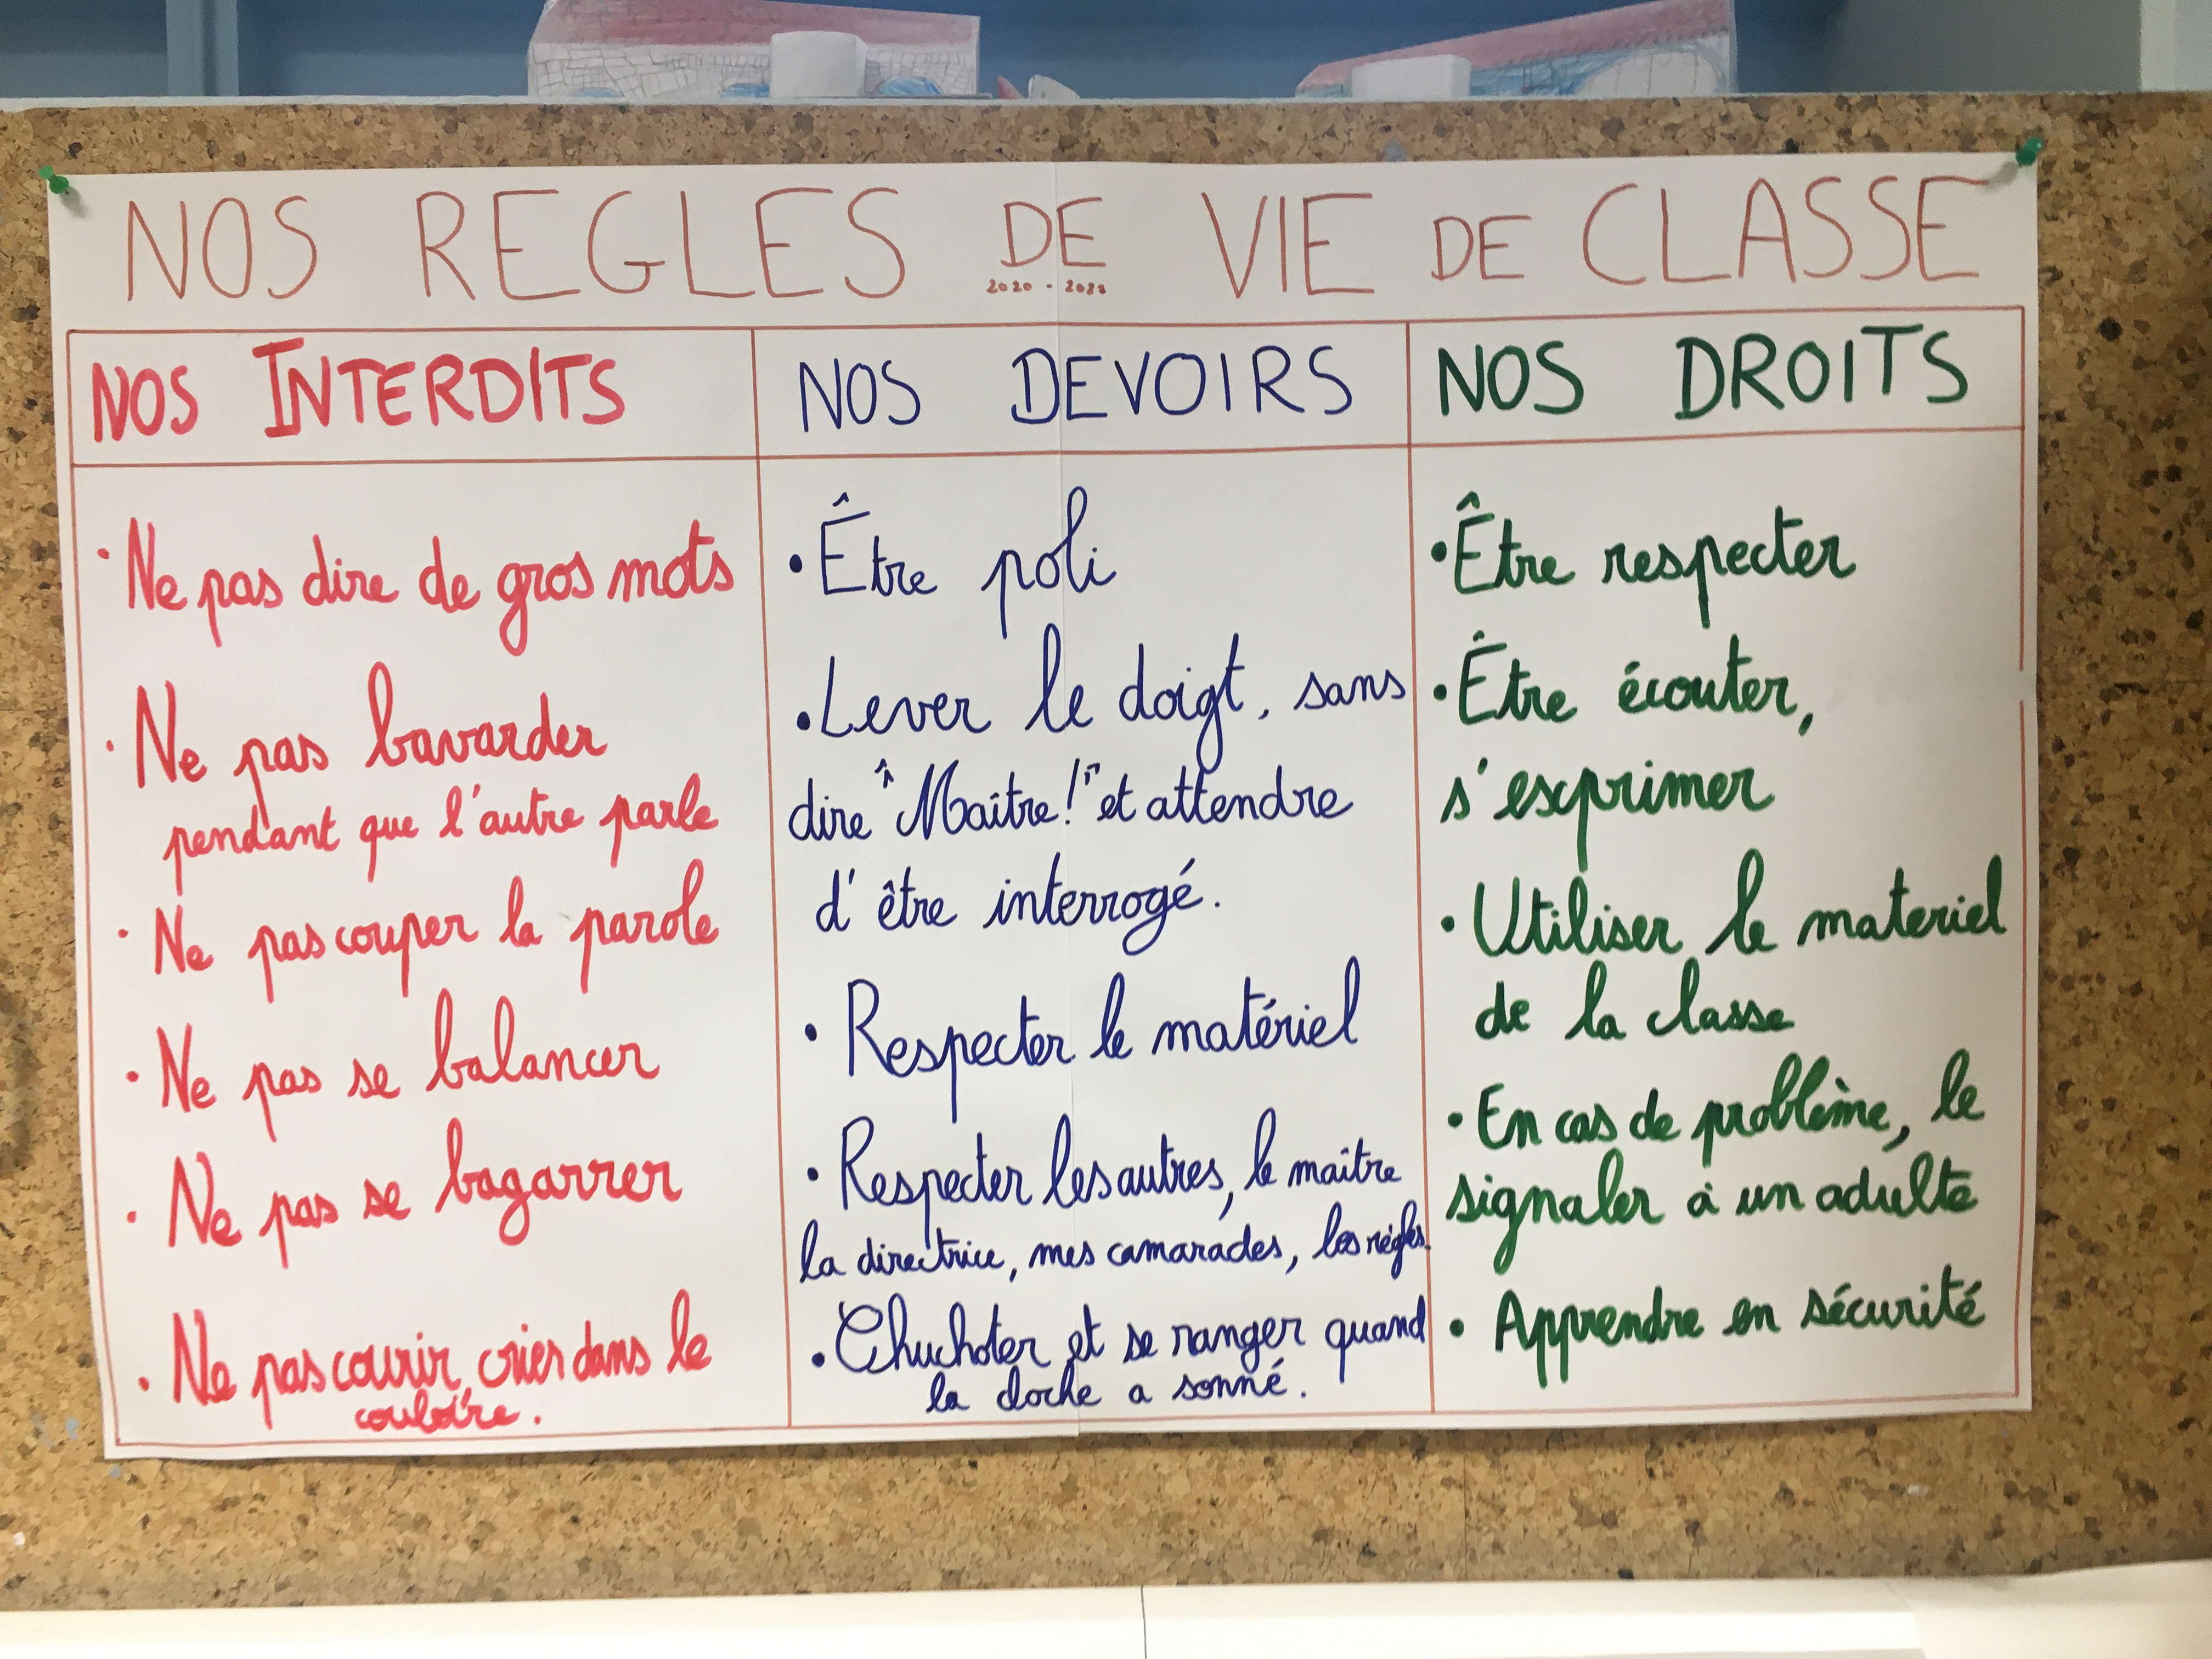 NOS REGLES DE VIE DE CLASSE
2020 - 2021
NOS INTERDITS
• Ne pas dire de gros mots
• Ne pas bavarder
pendant que l'autre parle
• Ne pas couper la parole
• Ne pas se balancer
• Ne pas se bagarrer
• Ne pas courir, crier dans le
couloire.
NOS DEVOIRS
• Être poli
• Lever le doigt, sans
dire "Maître!" et attendre
d'être interrogé.
• Respecter le matériel
• Respecter les autres, le maître
la directrice, mes camarades, les règles.
• Chuchoter et se ranger quand
la cloche a sonné.
NOS DROITS
• Être respecter
• Être écouter,
s'exprimer
• Utiliser le materiel
de la classe
• En cas de problème, le
signaler à un adulte
• Apprendre en sécurité